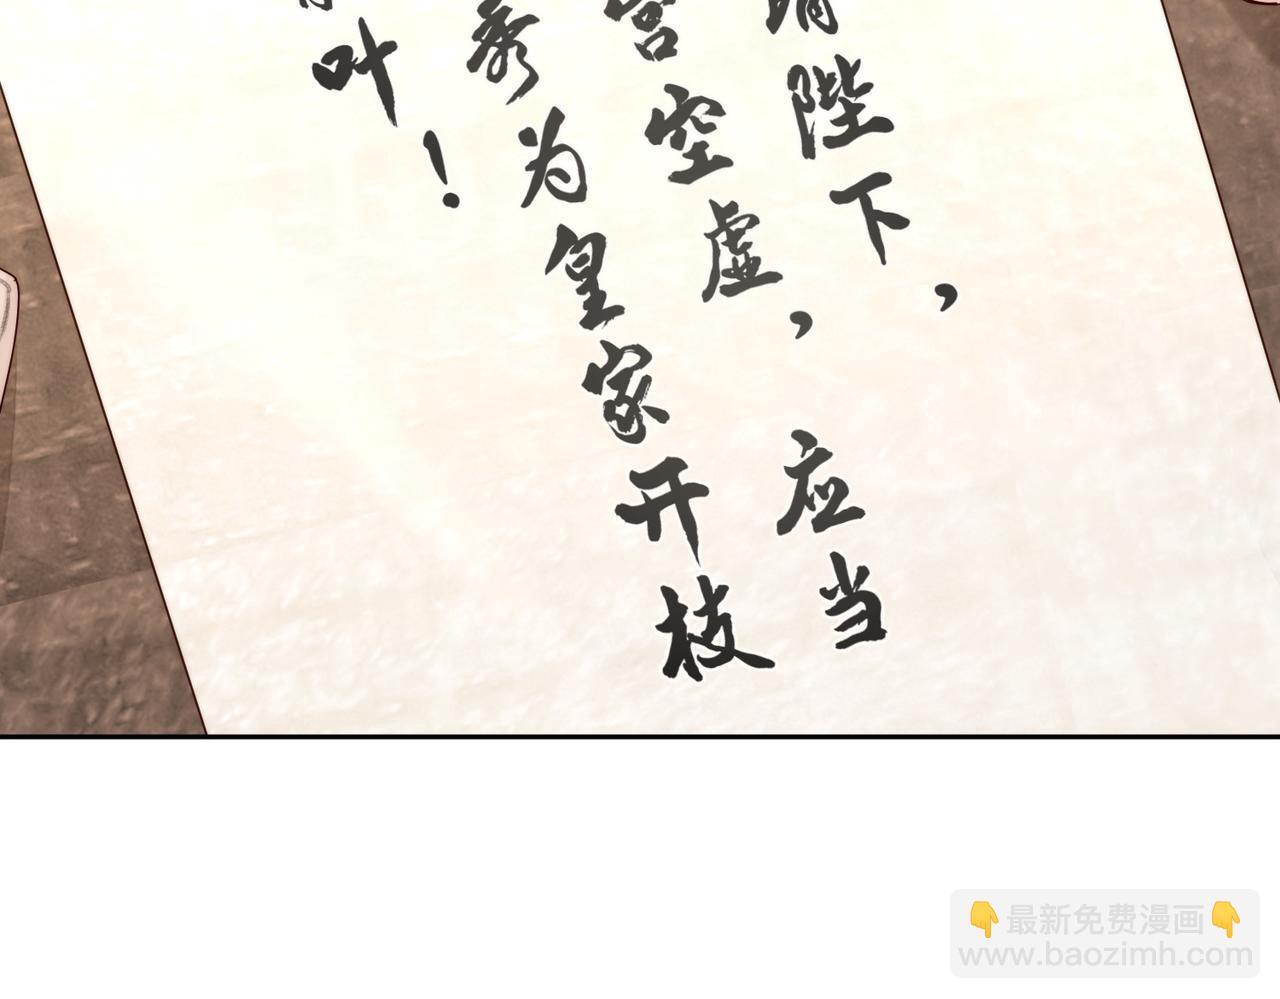 请陛下，
宫空虚，应当
秀为皇家开枝
叶！
👇最新免费漫画👇
www.baozimh.com